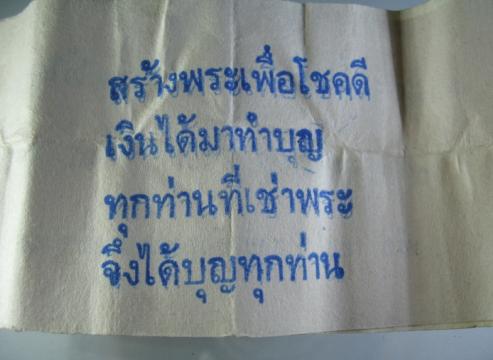 สร้างพระเพื่อโชคดี
เงินได้มาทำบุญ
ทุกท่านที่เช่าพระ
จึงได้บุญทุกท่าน